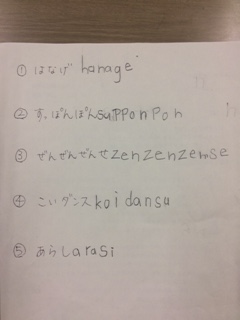 ① はなげ hanage
② すっぽんぽん suppon pon
③ ぜんぜんぜんせ zenzenzense
④ こいダンス koi dansu
⑤ あらし arasi